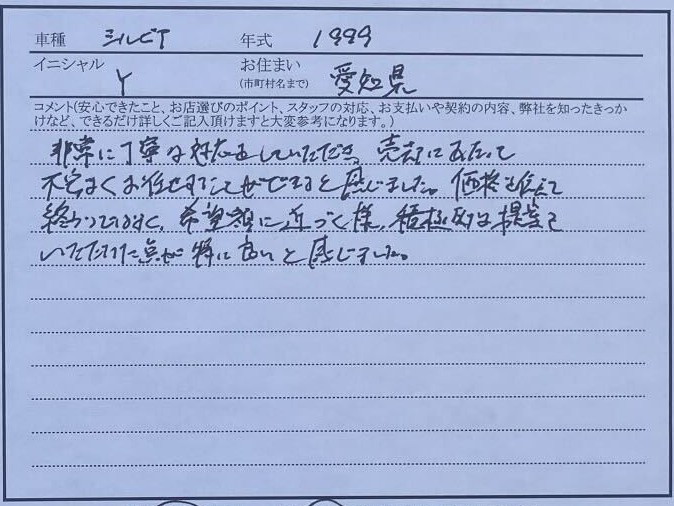 車種 シルビア 年式 1999
イニシャル Y お住まい(市町村名まで) 愛知県
コメント(安心できたこと、お店選びのポイント、スタッフの対応、お支払いや契約の内容、弊社を知ったきっか
けなど、できるだけ詳しくご記入頂けますと大変参考になります。)
非常に丁寧な対応をしていただき、売却にあたって
不安なくお任せすることができると感じました。価格を伝えて
終わりではなく、希望額に近づく様、積極的な提案を
いただけた点が特に良いと感じました。